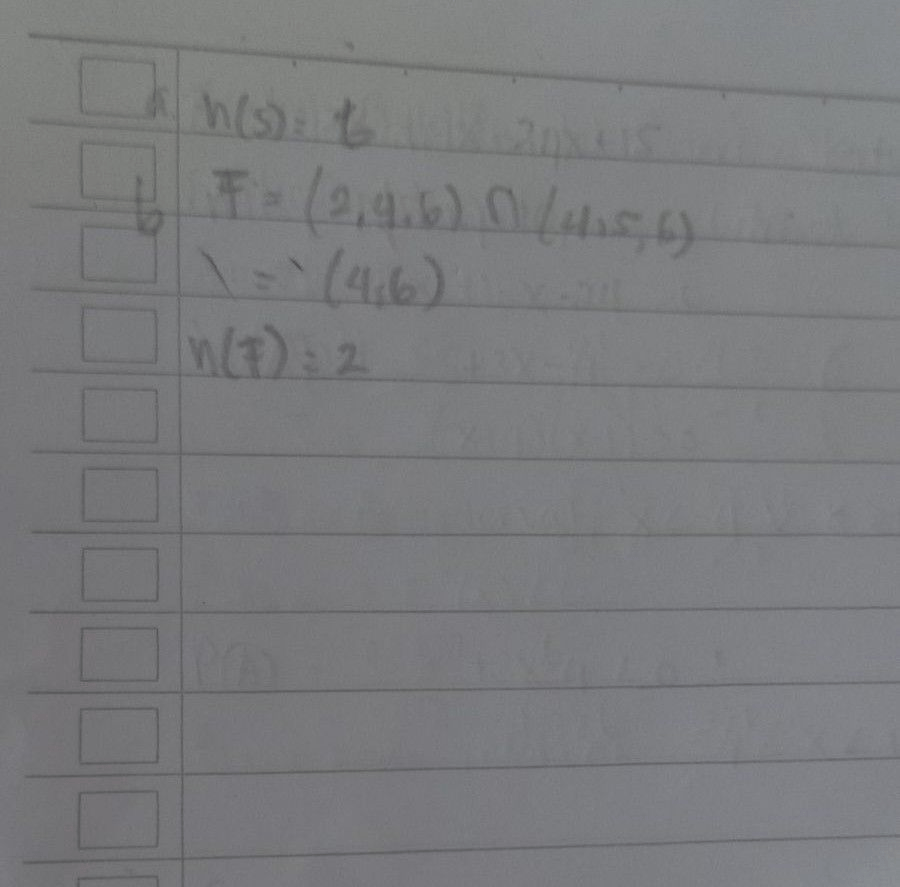 a. n(s) = 6
b F = (2,4,6) ∩ (4,5,6)
\ = (4,6)
n(F) = 2